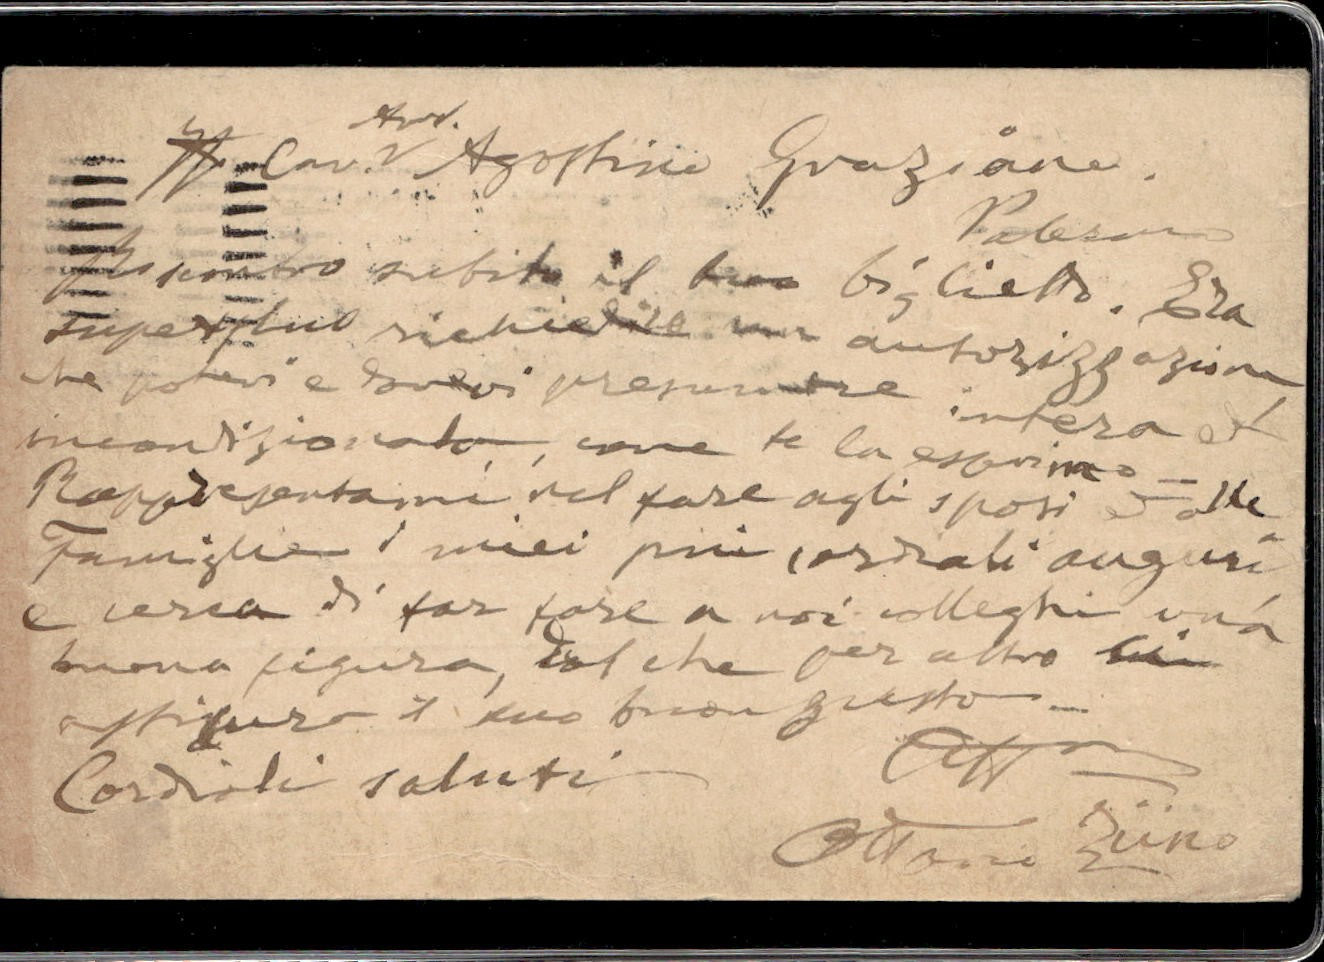 Avv.
Cav. Agostino Graziano.
Palermo
Riscontro subito il tuo biglietto. Era
superfluo richiedere un autorizzazione
che potevi e dovevi presumere intera ed
incondizionata, come te la esprimo _
Rappresentami nel fare agli sposi e alle
Famiglie i miei più cordiali auguri
e cerca di far fare a noi colleghi una
buona figura, del che per altro
assicura il tuo buon gusto _
Cordiali saluti
Aff
Ottavio Ziino